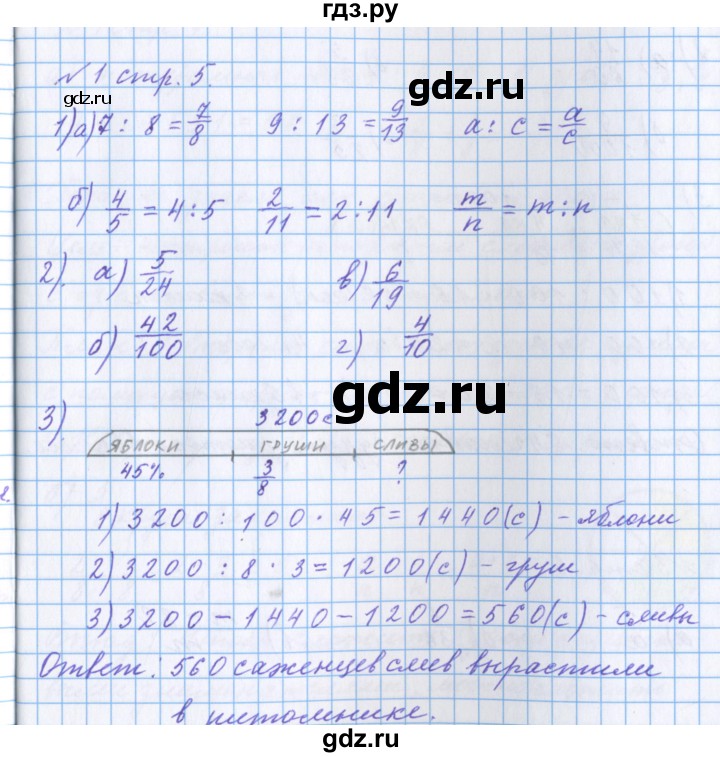 гдз.ру
№ 1 стр. 5.
gdz.ru
1) а) 7 : 8 = 7/8 9 : 13 = 9/13 a : c = a/c
gdz.ru
б) 4/5 = 4 : 5 2/11 = 2 : 11 m/n = m : n
2). а) 5/24 в) 6/19
б) 42/100 г) 4/10
gdz.ru
3). 3200с
ЯБЛОКИ ГРУШИ СЛИВЫ
45% 3/8 ?
1) 3200 : 100 · 45 = 1440(с) – яблони
2) 3200 : 8 · 3 = 1200(с) – груш
3) 3200 – 1440 – 1200 = 560(с) – сливы
Ответ: 560 саженцев слив вырастили
в питомнике.
gdz.ru